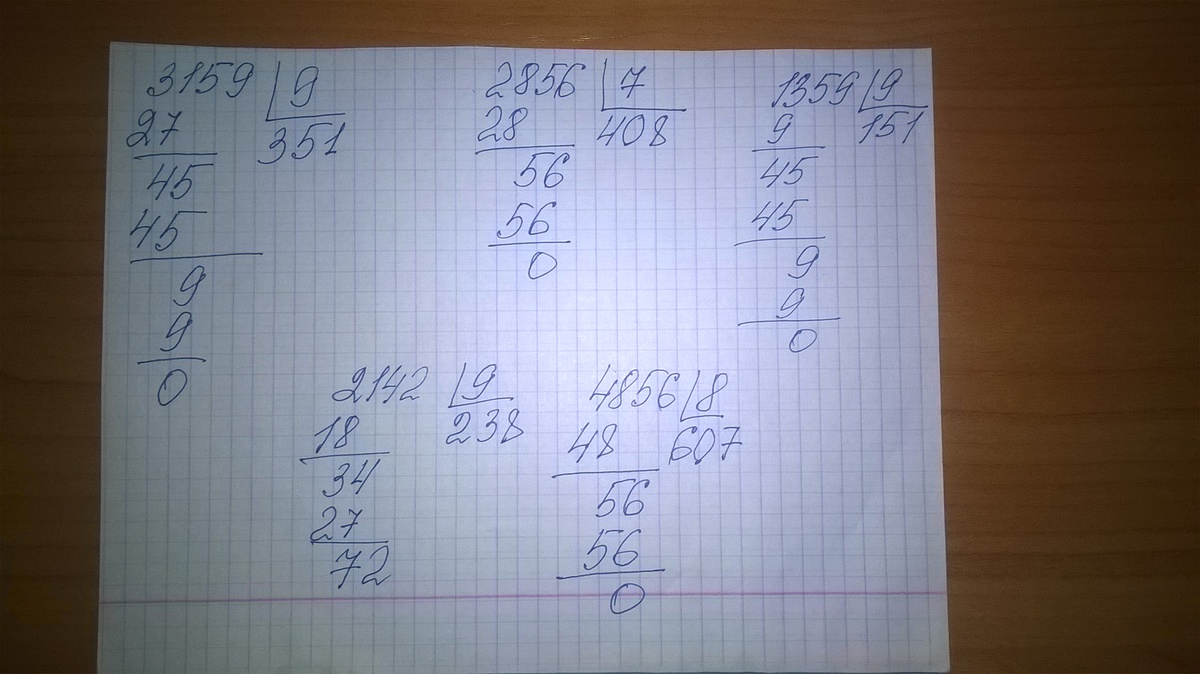 3159 9
27 351
45
45
9
9
0
2856 7
28 408
56
56
0
1359 9
9 151
45
45
9
9
0
2142 9
18 238
34
27
72
4856 8
48 607
56
56
0